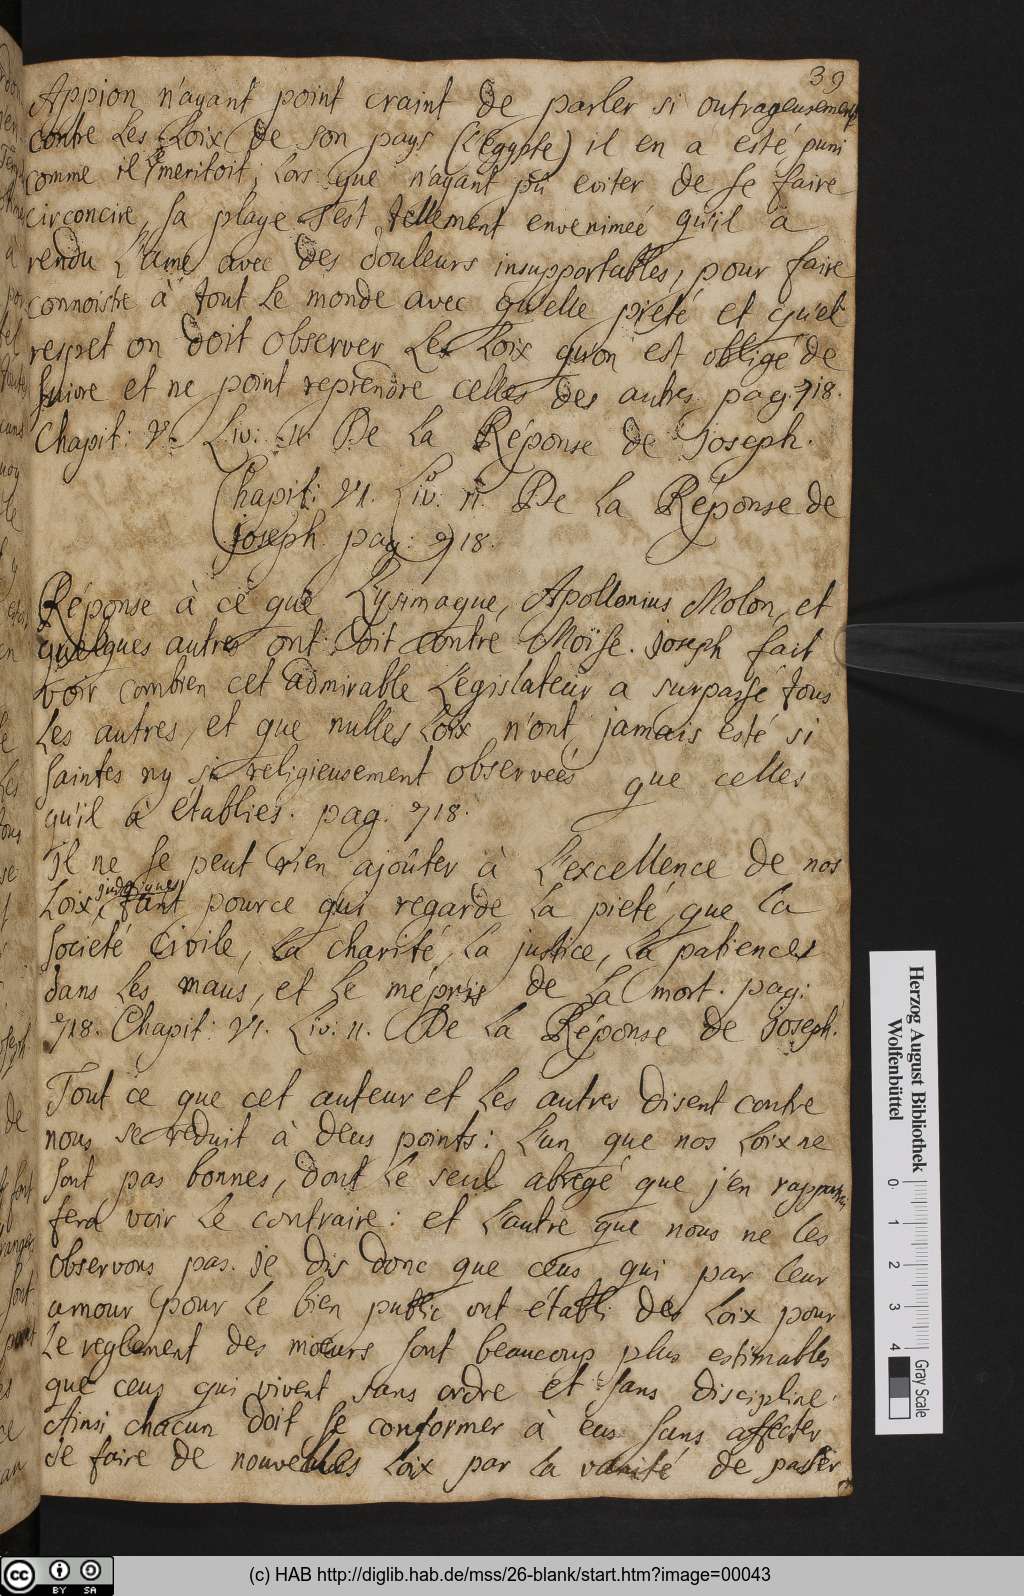 39
Appion n'ayant point craint de parler si outrageusement
contre les Loix de son pays (L'égypte) il en a esté puni
comme il le meritoit, Lors que n'ayant pû eviter de se faire
circoncire, sa playe s'est tellement envenimeé qu'il à
rendu L'ame avec des douleurs insupportables, pour faire
connoistre à tout Le monde avec quelle pieté et quel
respet on doit observer Les Loix qu'on est obligé de
suivre et ne point reprendre celles des autres pag: 718.
Chapit: V. Liv: II. De La Réponse de Joseph.
Chapit: VI. Liv: II. De La Réponse de
Joseph. pag: 718.
Réponse à ce que Lysimaque, Apollonius Molon, et
quelques autres ont dit contre Moïse. Joseph fait
voir combien cet admirable Legislateur a surpassé tous
Les autres, et que nulles Loix n'ont jamais esté si
saintes ny si religieusement observeés que celles
qu'il à établies. pag. 718.
Il ne se peut rien ajoûter à L'excellence de nos
Loix, judaiques tant pource qui regarde La pieté, que La
societé Civile, La charité, La justice, La patience
dans Les maus, et Le mépris de La mort. pag:
718. Chapit: VI. Liv: II. De La Réponse de Joseph.
Tout ce que cet auteur et Les autres disent contre
nous se reduit à deus points: L'un que nos Loix ne
sont pas bonnes, dont Le seul abregé que j'en rapporterai
fera voir Le contraire: et L'autre que nous ne Les
observons pas. Je dis donc que ceus qui par Leur
amour pour Le bien public ont établi des Loix pour
Le reglement des moeurs sont beaucoup plus estimables
que ceus qui vivent sans ordre et sans discipline.
Ainsi chacun doit se conformer à eus sans affecter
de faire de nouvelles Loix par La vanité de passer
Herzog August Bibliothek
Wolfenbüttel
0 1 2 3 4
Gray Scale
cc BY SA
(c) HAB http://diglib.hab.de/mss/26-blank/start.htm?image=00043